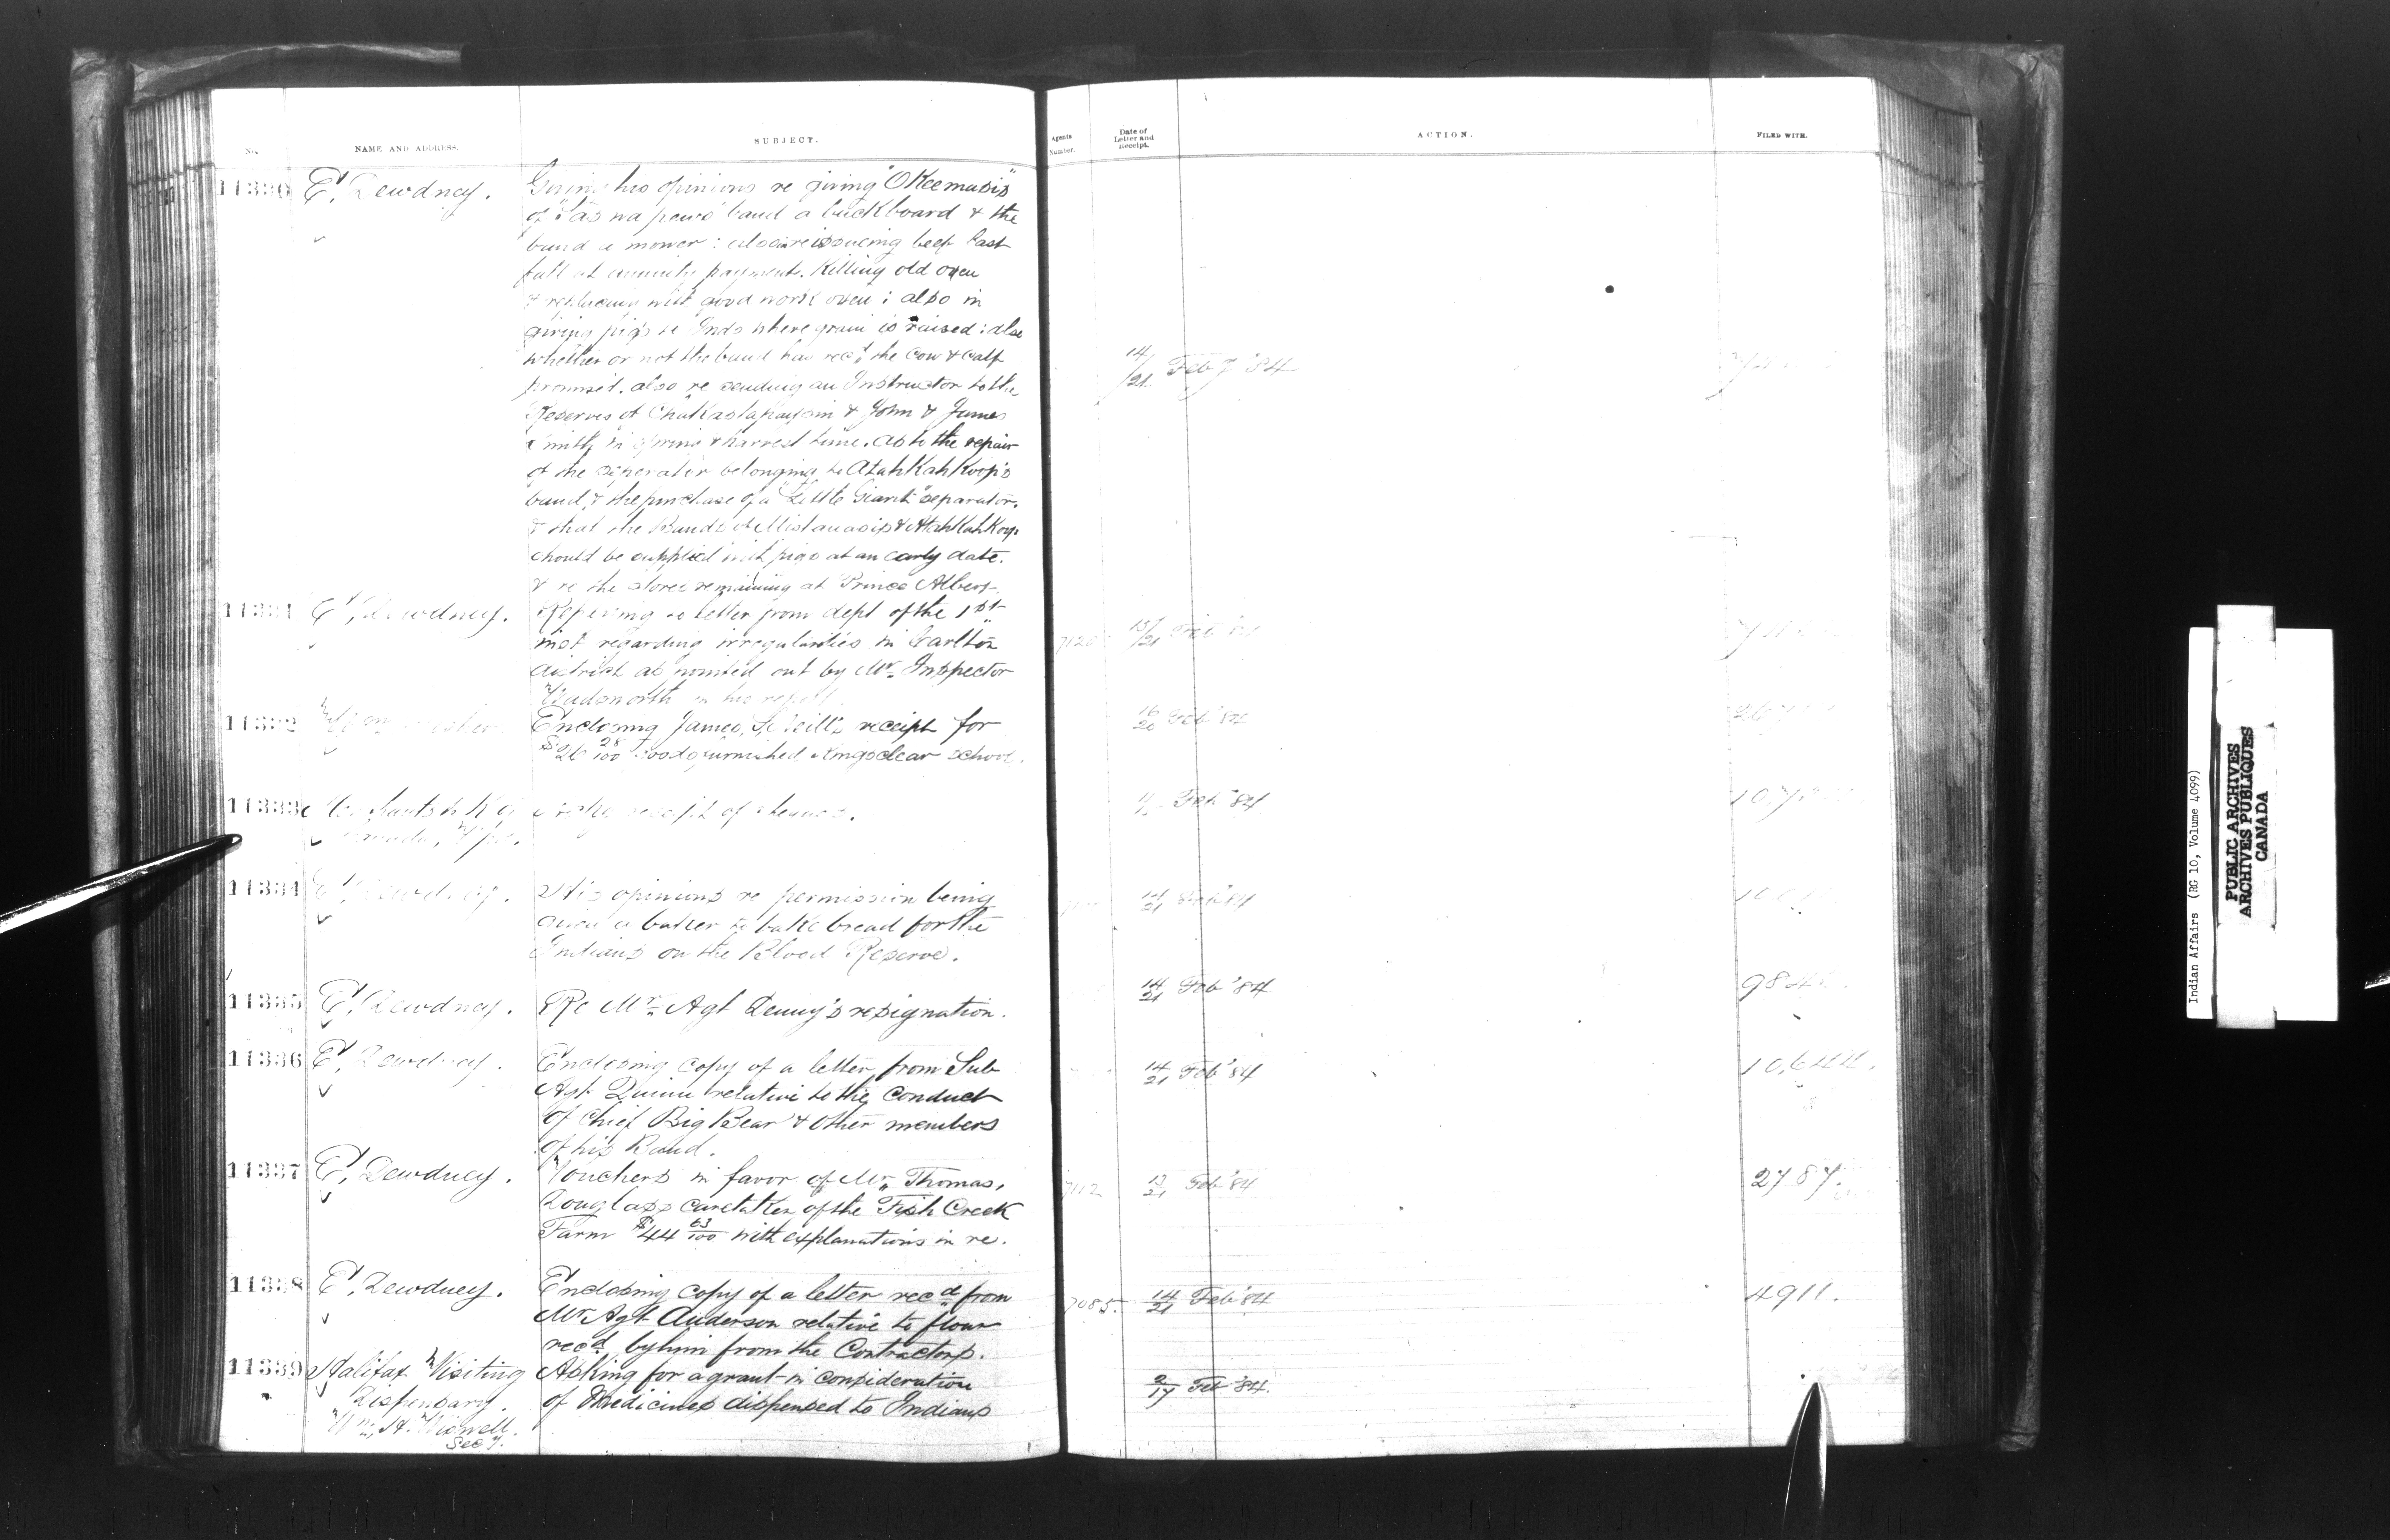 No.
NAME AND ADDRESS.
SUBJECT.
Agents Number.
Date of Letter and Receipt.
ACTION.
FILED WITH.
11330 E. Dewdney. Giving his opinions re giving "OKeemasis"
of band a buckboard & the
band a mower: also re issuing beef last
fall at annuity payments. Killing old oxen
& replacing with good work oxen; also in
giving pigs to Inds where grain is raised: also
whether or not the band has recd the cow & calf
promised. also re sending an Instructor to the
Reserves of & John & James
Smith in spring & harvest time. as to the repair
of the seperator belonging to AtahKahKoop's
band, & the purchase of a "Little Giant" separator.
& that the Bands of Mistawasis & AtahKahKoop
should be supplied with pigs at an early date.
& re the stores remaining at Prince Albert.
14/21 Feby '84
11331 E. Dewdney. Referring to letter from dept of the 1st
inst regarding irregularities in Carlton
district as pointed out by Mr. Inspector
Wadsworth in his report.
15/21 Feb '84
11332 Enclosing James receipt for
$26 28/100 furnished Kingsclear School.
16/20 Feb '84
11333 receipt of cheques.
Feb '84
11334 E. Dewdney. His opinions re permission being
given a baker to bake bread for the
Indians on the Blood Reserve.
14/21 Feb '84
11335 E. Dewdney. Re Mr. Agt Denny's resignation.
14/21 Feb '84
11336 E. Dewdney. Enclosing copy of a letter from Sub
Agt Quinn relative to the conduct
of Chief Big Bear & other members
of his Band.
14/21 Feb '84 10,644.
11337 E. Dewdney. Vouchers in favor of Mr. Thomas,
Douglass caretaker of the Fish Creek
Farm $44 63/100 with explanations in re.
7112 13/21 Feb '84 2787.
11338 E. Dewdney. Enclosing copy of a letter recd from
Mr Agt Anderson relative to flour
recd by him from the Contractors.
7085. 14/21 Feb '84 4911.
11339 Halifax Visiting Asking for a grant in consideration
Dispensary. of Medicines dispensed to Indians
Wm. H. Wiswell.
Secy.
2/17 Feb '84.
Indian Affairs (RG 10, Volume 4099)
PUBLIC ARCHIVES
ARCHIVES PUBLIQUES
CANADA